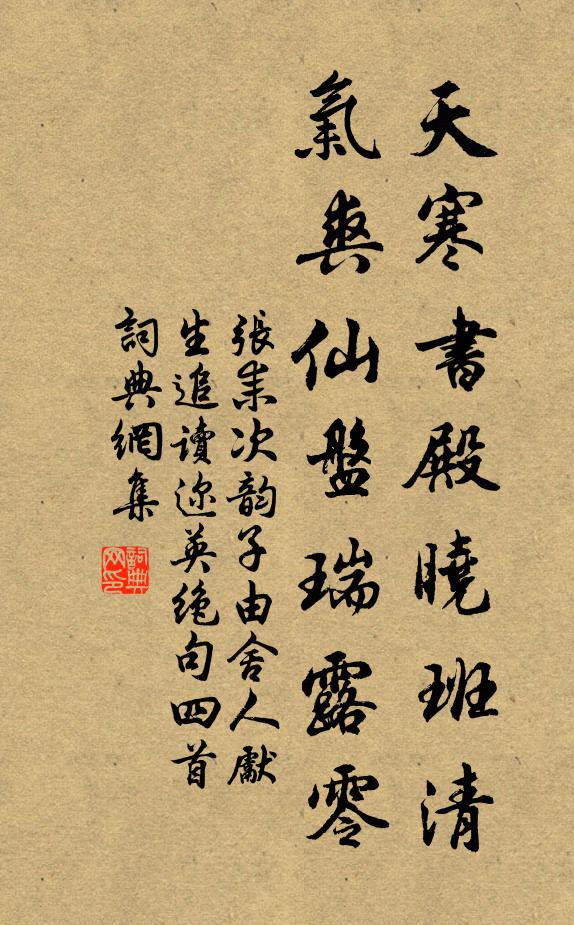 天寒書殿曉班清
氣爽仙盤瑞露零
張耒次韵子由舍人獻
生追讀邇英絶句四首
詞典網集
詞典
网印